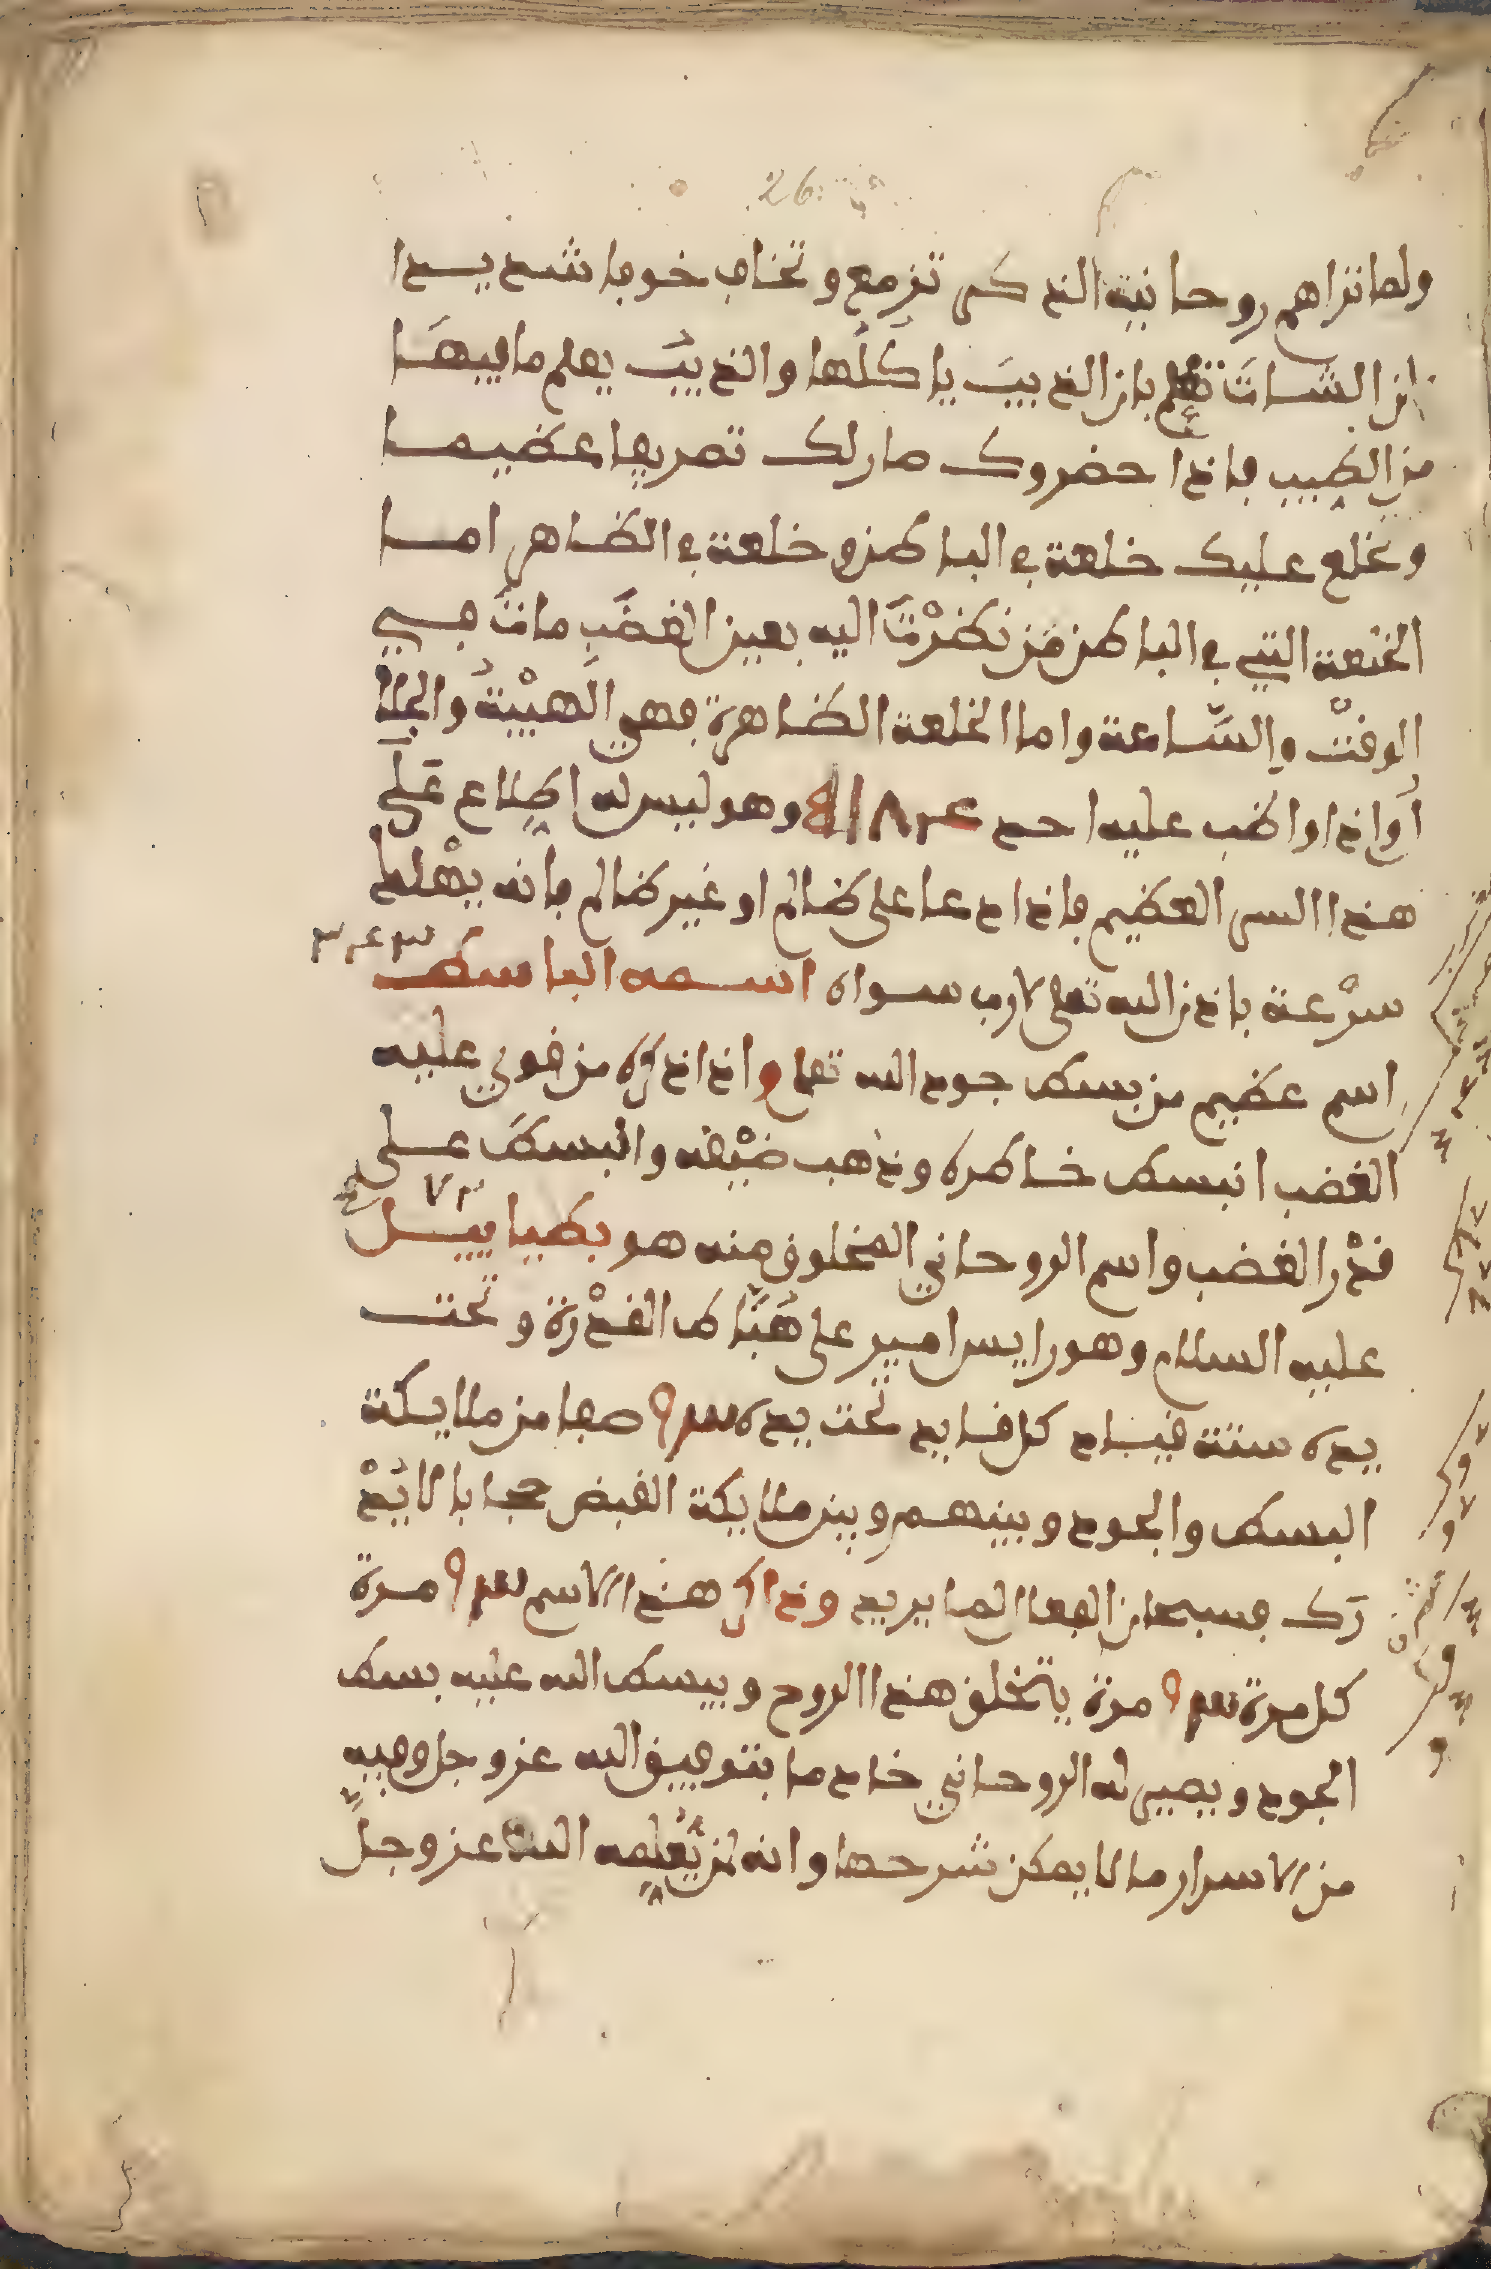 26
ولما نراهم روحانية الذكر تزمع وتخاف خوفا شديدا
ان الشات تعلم بان الذيب ياكلها والذيب يعلم ما فيها
من الطبيب فاذا حضروك صار لك تصريفا عظيما
وتخلع عليك خلعة في الباطن وخلعة في الظاهر اما
الخلعة التي في الباطن من نظرت اليه بعين الغضب مات في
الوقت والساعة واما الخلعة الظاهرة فهي الهيبة والجلا
واذا واظب عليه احد وهو ليس له اطلاع على
هذا السر العظيم فاذا دعا على ظالم او غير ظالم فانه يهلك
سرعة باذن الله تعلى لا رب سواه اسمه الباسط
اسم عظيم من بسط جود الله تعلى واذا ذكره من قوي عليه
الغضب انبسط خاطره وذهب ضيقه والبسط على
قدر الغضب واسم الروحاني المخلوق منه هو بطيياييل
عليه السلام وهو رايس امير على هباط القدرة وتحت
يده ستة قياد كل قايد تحت يده صفا من ملايكة
البسط والجود وبينهم وبين ملايكة القبض حجابا لا يد
رك فسبحان الفعال لما يريد وذاكر هذا الاسم مرة
كل مرة مرة يتخلق هذا الروح ويبسط الله عليه بسط
الجود ويصير له الروحاني خادما بتوفيق الله عز وجل وفيه
من الاسرار ما لا يمكن شرحها وانه لمن يعلمه الله عز وجل